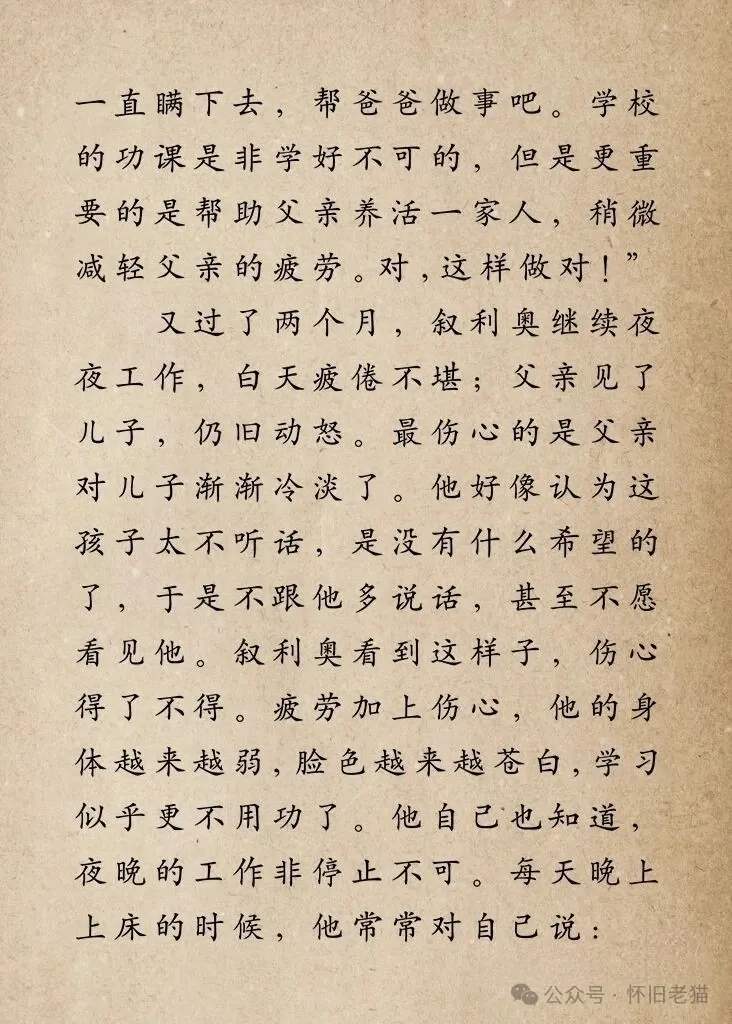 一直瞒下去，帮爸爸做事吧。学校
的功课是非学好不可的，但是更重
要的是帮助父亲养活一家人，稍微
减轻父亲的疲劳。对，这样做对！”
又过了两个月，叙利奥继续夜
夜工作，白天疲倦不堪；父亲见了
儿子，仍旧动怒。最伤心的是父亲
对儿子渐渐冷淡了。他好像认为这
孩子太不听话，是没有什么希望的
了，于是不跟他多说话，甚至不愿
看见他。叙利奥看到这样子，伤心
得了不得。疲劳加上伤心，他的身
体越来越弱，脸色越来越苍白，学习
似乎更不用功了。他自己也知道，
夜晚的工作非停止不可。每天晚上
上床的时候，他常常对自己说：
公众号·怀旧老猫